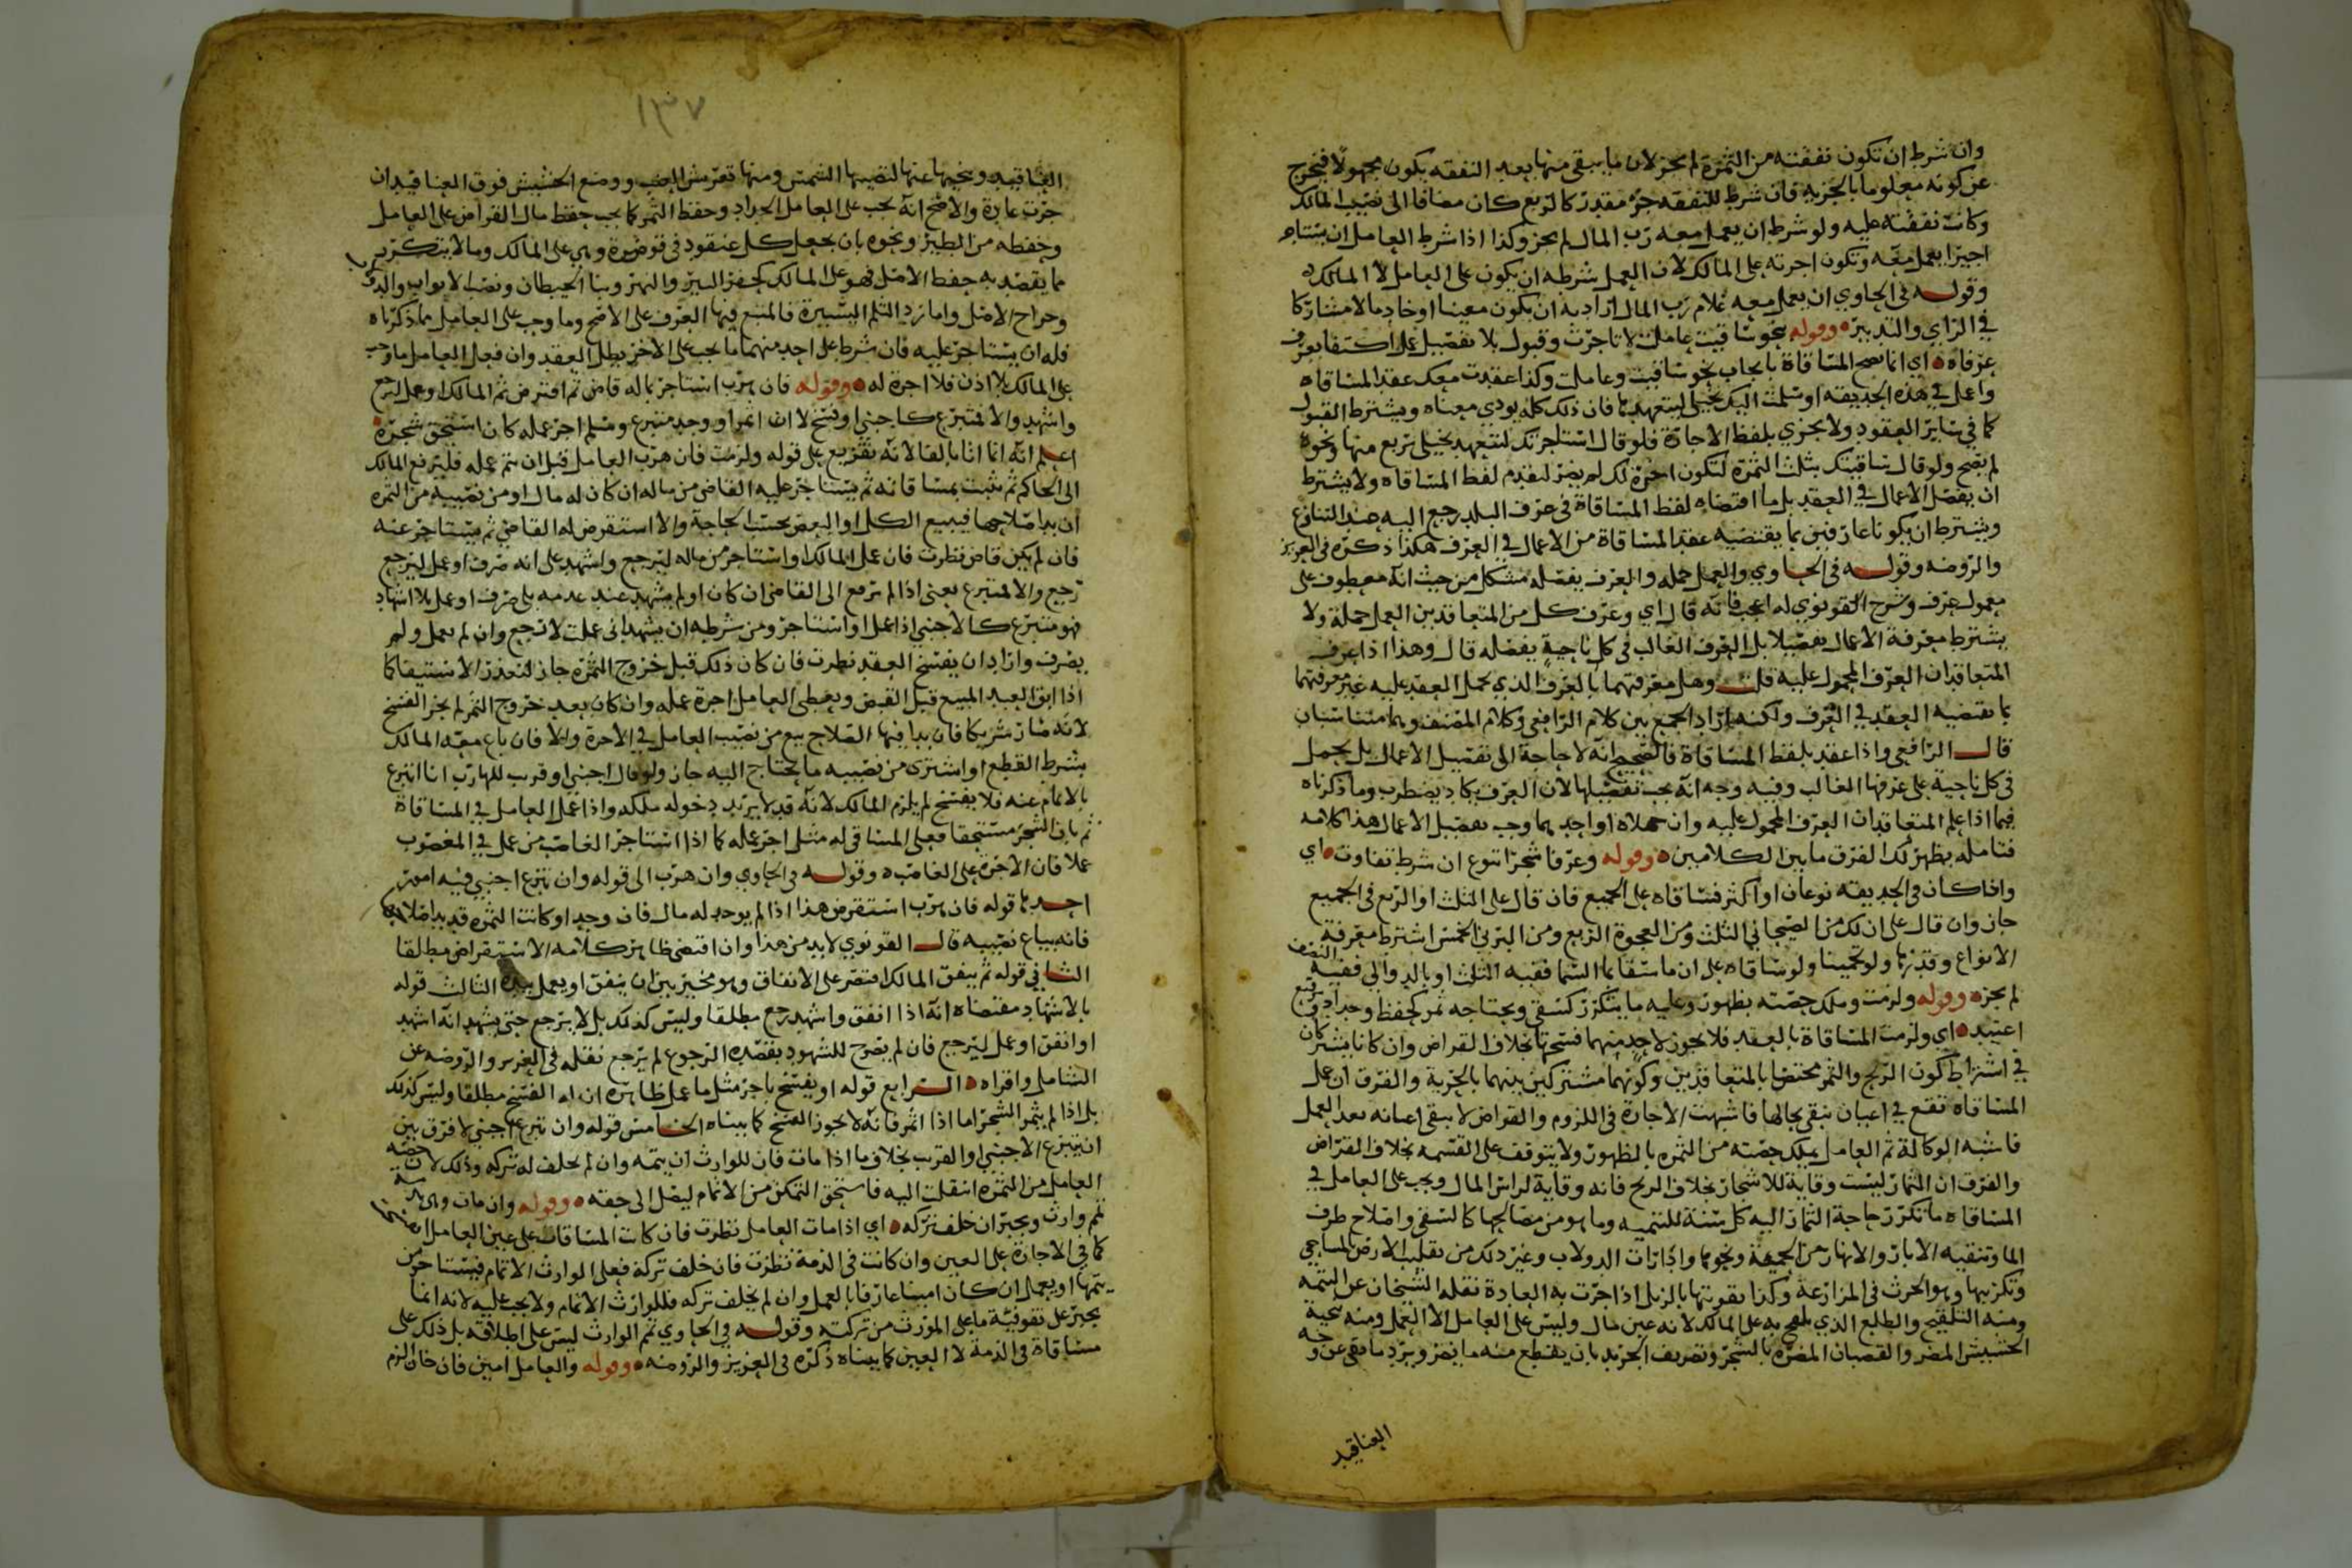 وان شرط ان تكون نفقته من الثمرة لم يجز لان ما يبقى منها بعد النفقه يكون مجهولا فيخرج
عن كونه معلوما بالجزيه فان شرط للنفقه جزء مقدر كالربع كان مضافا الى نصيب المالك
وكانت نفقته عليه ولو شرط ان يعمل معه رب المال لم يجز وكذا اذا شرط العامل ان يستاجر
اجيرا يعمل معه وتكون اجرته على المالك لان العمل شرطه ان يكون على العامل لا المالك
وقوله في الحاوي ان يعمل معه غلام رب المال اراد به ان يكون معينا او خادما لا مشاركا
في الراي والتدبير وقوله بنحو ساقيت عاملت لا تاجرت وقبول بلا تفصيل عمل اكتفا بعرف
عرفاه اي انما تصح المساقاة بايجاب نحو ساقيت وعاملت وكذا عقدت معك عقد المساقاه
واعمل في هذه الحديقه او سلمت اليك نخيلي لتتعهدها فان ذلك كله يودي معناه ويشترط القبول
كما في سائر العقود ولا يجزي بلفظ الاجارة فلو قال استاجرتك لتتعهد نخيلي بربع منها ونحوه
لم يصح ولو قال ساقيتك بثلث الثمرة لتكون اجرة لك لم يضر لتقدم لفظ المساقاه ولا يشترط
ان يفصل الاعمال في العقد بل ما اقتضاه لفظ المساقاة في عرف البلد رجع اليه عند التنازع
ويشترط ان يكونا عارفين بما يقتضيه عقد المساقاة من الاعمال في العرف هكذا ذكره في العزيز
والروضه وقوله في الحاوي والعمل جمله والعرف يفصله مشكل من حيث انه معطوف على
معمول عرف وشرح القونوي له اعجب فانه قال اي وعرف كل من المتعاقدين العمل جملة ولا
يشترط معرفة الاعمال تفصيلا بل العرف الغالب في كل ناحية يفصله قال وهذا اذا عرف
المتعاقدان العرف المحمول عليه قلت وهل معرفتهما بالعرف الذي يحمل العقد عليه غير معرفتهما
بما يقتضيه العقد في العرف ولكنه اراد الجمع بين كلام الرافعي وكلام المصنف وهما متناسبان
قال الرافعي واذا عقد بلفظ المساقاة فالصحيح انه لا حاجة الى تفصيل الاعمال بل يحمل
في كل ناحية على عرفها الغالب وفيه وجه انه يجب تفصيلها لان العرف يكاد يضطرب وما ذكرناه
فيما اذا علم المتعاقدان العرف المحمول عليه وان جهلاه او احدهما وجب تفصيل الاعمال هذا كلامه
فتامله يظهر لك الفرق ما بين الكلامين وقوله وعرفا شجرا تنوع ان شرط تفاوت اي
واذا كان في الحديقه نوعان او اكثر فساقاه على الجميع فان قال على الثلث او الربع في الجميع
جاز وان قال على ان لك من الصيحاني الثلث ومن العجوة الربع ومن البرني الخمس اشترط معرفة
الانواع وقدرها ولو تخمينا ولو ساقاه على ان ما سقاها السما ففيه الثلث او بالدوالي ففيه النصف
لم يجز وقوله ولزمت وملك حصته بظهور وعليه ما يتكرر كسقي ويحتاجه ثمر كحفظ وجداد
اعتيد اي ولزمت المساقاة بالعقد فلا يجوز لاحد منهما فسخها بخلاف القراض وان كانا يشتركان
في اشتراط كون الربح والثمر مختصا بالمتعاقدين وكونهما مشتركين بينهما بالجزية والفرق ان عمل
المساقاه تقع في اعيان تبقى بحالها فاشبهت الاجارة في اللزوم والقراض لا يبقى اعيانه بعد العمل
فاشبه الوكالة ثم العامل يملك حصته من الثمره بالظهور ولا يتوقف على القسمه بخلاف القراض
والفرق ان الثمار ليست وقاية للاشجار بخلاف الربح فانه وقاية لراس المال ويجب على العامل في
المساقاه ما تكرر حاجة الثمار اليه كل سنة للتنميه وما هو من مصالحها كالسقي واصلاح طرف
الما وتنقيه الابار والانهار من الحماة ونحوها وادارات الدولاب وغير ذلك من تقليب الارض بالمساحي
وتكريبها وهو الحرث في المزارعة وكذا تقويتها بالزبل اذا جرت به العادة نقله الشيخان عن التتمه
ومنه التلقيح والطلع الذي يلقح به على المالك لانه عين مال وليس على العامل الا العمل ومنه تنحية
الحشيش المضر والقضبان المضره بالشجر وتصريف الجريد بان يقطع منه ما يضر ويرد ما بقي عن وجه
العناقيد
١٣٧
العناقيد وينحيها عنها لتصيبها الشمس ومنها تعريش العنب ووضع الحشيش فوق العناقيد ان
جرت عادة والاصح انه يجب على العامل الجداد وحفظ الثمر كما يجب حفظ مال القراض على العامل
وحفظه من الطير ونحوه بان يجعل كل عنقود في قوصرة وهي على المالك وما لا يتكرر
مما يقصد به حفظ الاصل فهو على المالك كحفر البير والنهر وبنا الحيطان ونصب الابواب والدولاب
وخراج الاصل واما ردم الثلم اليسيرة فالمتبع فيها العرف على الاصح وما وجب على العامل مما ذكرناه
فله ان يستاجر عليه فان شرط على احد منهما ما يجب على الاخر بطل العقد وان فعل العامل ما وجب
على المالك بلا اذن فلا اجرة له وقوله فان هرب استاجر بماله قاض ثم اقترض ثم المالك او عمل ليرجع
واشهد والا فمتبرع كاجنبي او فسخ لا ان اثمر او وجد متبرع وسلم اجر عمله كان استحق شجره
اعلم انه انما اتا بالفا لانه تفريع على قوله ولزمت فان هرب العامل قبل ان يتم عمله فليرفع المالك
الى الحاكم ثم يثبت بمساقاته ثم يستاجر عليه القاضي من ماله ان كان له مال او من نصيبه من الثمره
ان بدا صلاحها فيبيع الكل او البعض بحسب الحاجة والا استقرض له القاضي ثم يستاجر عنه
فان لم يكن قاض نظرت فان عمل المالك او استاجر من ماله ليرجع واشهد على انه صرف او عمل ليرجع
رجع والا لمتبرع يعني اذا لم يرفع الى القاضي ان كان او لم يشهد عند عدمه بل صرف او عمل بلا اشهاد
فهو متبرع كالاجنبي اذا عمل او استاجر ومن شرطه ان يشهد اني عملت لارجع وان لم يعمل ولم
يصرف واراد ان يفسخ العقد نظرت فان كان ذلك قبل خروج الثمره جاز لتعذر الاستيفا كما
اذا ابق العبد المبيع قبل القبض ويعطى العامل اجرة عمله وان كان بعد خروج الثمر لم يجز الفسخ
لانه صار شريكا فان بدا فيها الصلاح بيع من نصيب العامل في الاجرة والا فان باع معه المالك
بشرط القطع او اشترى من نصيبه ما يحتاج اليه جاز ولو قال اجنبي او قريب للهارب انا اتبرع
بالاتمام عنه فلا يفسخ لم يلزم المالك لانه قد لا يريد دخوله ملكه واذا عمل العامل في المساقاة
ثم بان الشجر مستحقا فعلى المساقي له مثل اجر عمله كما اذا استاجر الغاصب من عمل في المغصوب
عملا فان الاجرة على الغاصب وقوله في الحاوي وان هرب الى قوله وان تبرع اجنبي فيه امور
احدها قوله فان هرب استقرض هذا اذا لم يوجد له مال فان وجد او كانت الثمره قد بدا صلاحها
فانه يباع نصيبه قال القونوي لا بد من هذا وان اقتضى ظاهر كلامه الاستقراض مطلقا
الثاني قوله ثم ينفق المالك اقتصر على الانفاق وهو مخير بين ان ينفق او يعمل بيده الثالث قوله
بالاشهاد مقتضاه انه اذا انفق واشهد رجع مطلقا وليس كذلك بل لا يرجع حتى يشهد انه اشهد
او انفق او عمل ليرجع فان لم يصرح للشهود بقصده الرجوع لم يرجع نقله في العزيز والروضه عن
الشامل واقراه الرابع قوله او يفسخ باجر مثل ما عمل ظاهره ان له الفسخ مطلقا وليس كذلك
بل اذا لم يثمر الشجر اما اذا اثمر فانه لا يجوز الفسخ كما بيناه الخامس قوله وان تبرع اجنبي لا فرق بين
ان يتبرع الاجنبي او القريب بخلاف ما اذا مات فان للوارث ان يتمه وان لم يخلف له تركه وذلك لان حصه
العامل من الثمره انتقلت اليه فاستحق التمكن من الاتمام ليصل الى حقه وقوله وان مات وهي بذمته
تمم وارث ويجبر ان خلف تركه اي اذا مات العامل نظرت فان كانت المساقات على عين العامل انفسخا
كما في الاجارة على العين وان كانت في الذمة نظرت فان خلف تركة فعلى الوارث الاتمام فيستاجر من
يتمها او يعمل ان كان امينا عارفا بالعمل وان لم يخلف تركه فللوارث الاتمام ولا يجب عليه لانه انما
يجبر على توفية ما على المورث من تركته وقوله في الحاوي تمم الوارث ليس على اطلاقه بل ذلك على
مساقاة في الذمة لا العين كما بيناه ذكره في العزيز والروضه وقوله والعامل امين فان خان الزم